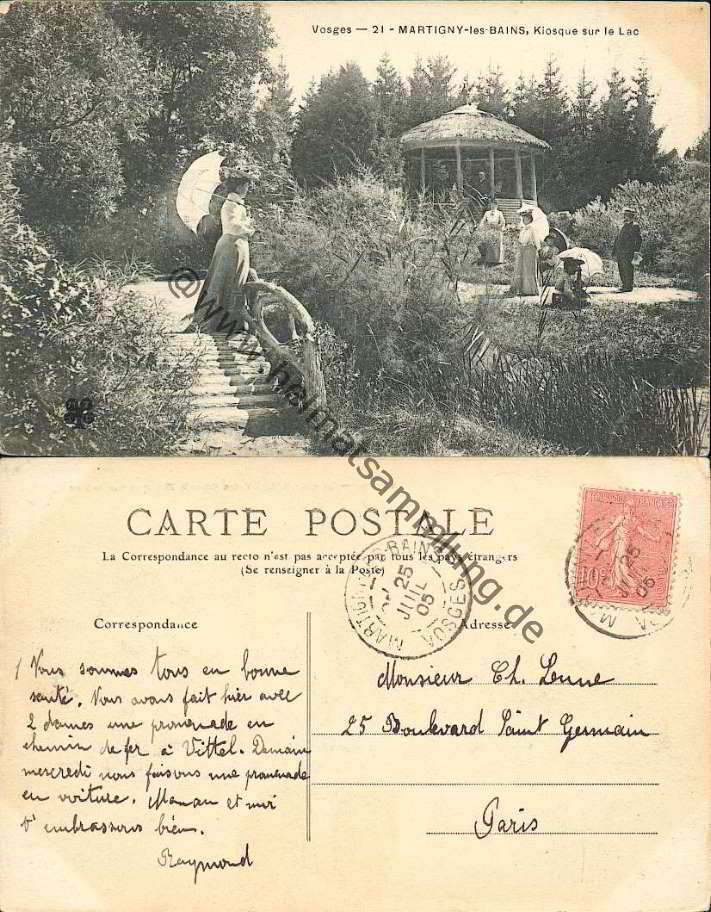 Vosges — 21 - MARTIGNY-les-BAINS, Kiosque sur le Lac
@www.heimatsammlung.de
CARTE POSTALE
La Correspondance au recto n'est pas acceptée par tous les pays étrangers
(Se renseigner à la Poste)
MARTIGNY-BAINS
25
JUIL
05
VOSGES
25
05
10
Correspondance
Adresse
Nous sommes tous en bonne
santé. Nous avons fait hier avec
2 dames une promenade en
chemin de fer à Vittel. Demain
mercredi nous faisons une promenade
en voiture. Maman et moi
t'embrassons bien.
Raymond
Monsieur Ch.
25 Boulevard Saint Germain
Paris